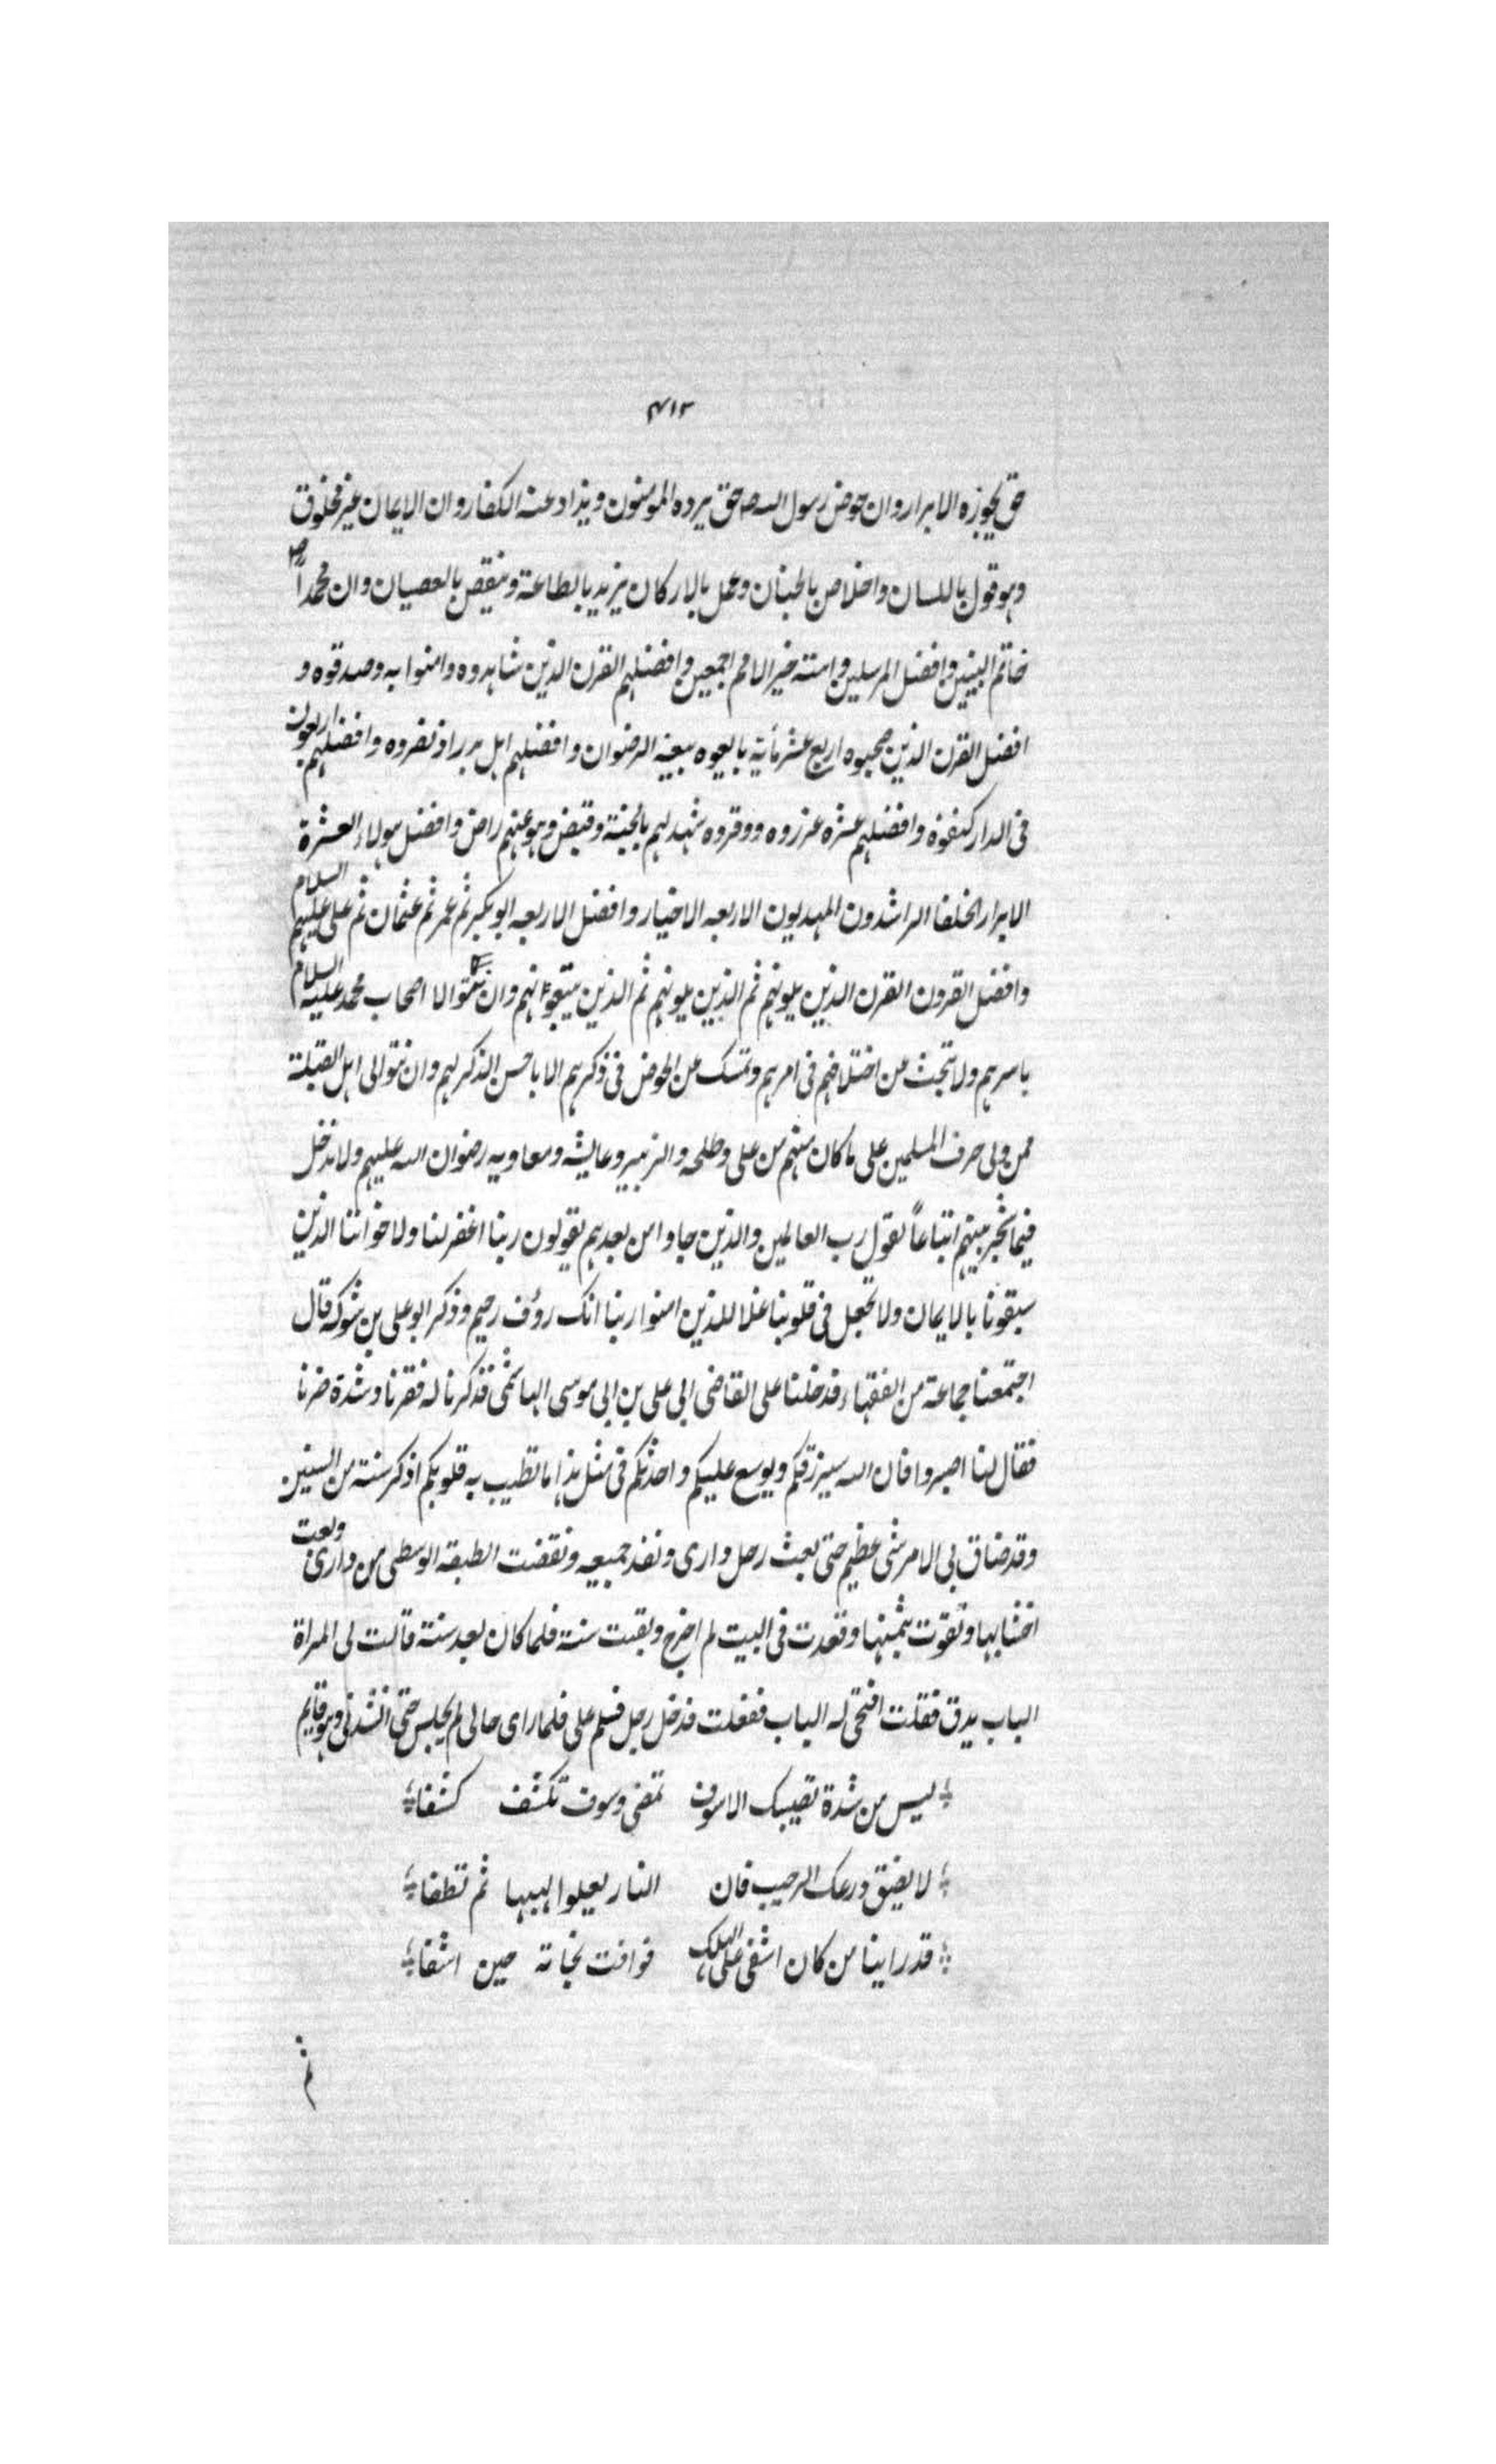 ٤١٢
حق يجوزه الابرار وان حوض رسول الله صلعم حق يرده المؤمنون ويذاد عنه الكفار وان الايمان غير مخلوق
وهو قول باللسان واخلاص بالجنان وعمل بالاركان يزيد بالطاعة وينقص بالعصيان وان محمداً صلعم
خاتم النبيين وافضل المرسلين وامته خير الامم اجمعين وافضلهم القرن الذين شاهدوه وامنوا به وصدقوه و
افضل القرن الذين صحبوه اربع عشر مأية بايعوه بيعة الرضوان وافضلهم اهل بدر اذ نصروه وافضلهم اربعون
فى الدار كنفوه وافضلهم عشرة عزروه ووقروه شهد لهم بالجنة وقبض وهو عنهم راض وافضل هولاء العشرة
الابرار الخلفا الراشدون المهديون الاربعه الاخيار وافضل الاربعه ابو بكر ثم عمر ثم عثمان ثم على عليهم السلام
وافضل القرون القرن الذين يلونهم ثم الذين يلونهم ثم الذين يتبعونهم وان نتوالا اصحاب محمد عليه السلام
باسرهم ولا نبحث عن اختلافهم فى امرهم ونمسك عن الخوض فى ذكرهم الا باحسن الذكر لهم وان نتوالى اهل القبلة
ممن ولى حرف المسلمين على ما كان منهم من على وطلحه والزبير وعايشه ومعاويه رضوان الله عليهم ولا ندخل
فيما شجر بينهم اتباعاً لقول رب العالمين والذين جاوا من بعدهم يقولون ربنا اغفر لنا ولاخواننا الذين
سبقونا بالايمان ولا تجعل فى قلوبنا غلا للذين امنوا ربنا انك رؤف رحيم وذكر ابو على بن شوكه قال
اجتمعنا جماعة من الفقهاء فدخلنا على القاضى ابى على بن ابى موسى الهاشمى فذكرنا له فقرنا وشدة ضرنا
فقال لنا اصبروا فان الله سيرزقكم ويوسع عليكم واحدثكم فى مثل هذا ما تطيب به قلوبكم اذكر سنة من السنين
وقد ضاق بى الامر شى عظيم حتى بعث رحل دارى ونفد جميعه ونقضت الطبقه الوسطى من دارى وبعت
اخشابها وتقوت بثمنها وقعدت فى البيت لم اخرج وبقيت سنة فلما كان بعد سنة قالت لى المراة
الباب يدق فقلت افتحى له الباب ففعلت فدخل رجل فسلم على فلما راى حالى لم يجلس حتى انشدنى وهو قايم
ليس من شدة تصيبك الا سوف تمضى وسوف تكشف كشفا
لا يضق ذرعك الرحيب فان النار يعلوا لهيبها ثم تطفا
قد راينا من كان اشفى على الهلك فوافت نجاته حين اشفا
ثم